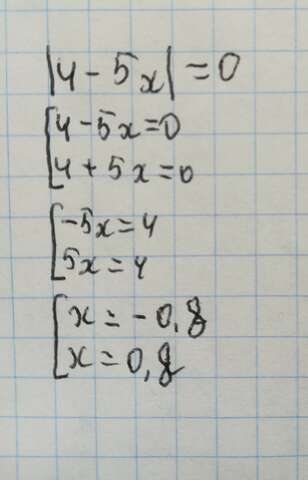 |4 - 5x| = 0
[4 - 5x = 0
4 + 5x = 0
[-5x = 4
5x = 4
[x = -0,8
x = 0,8